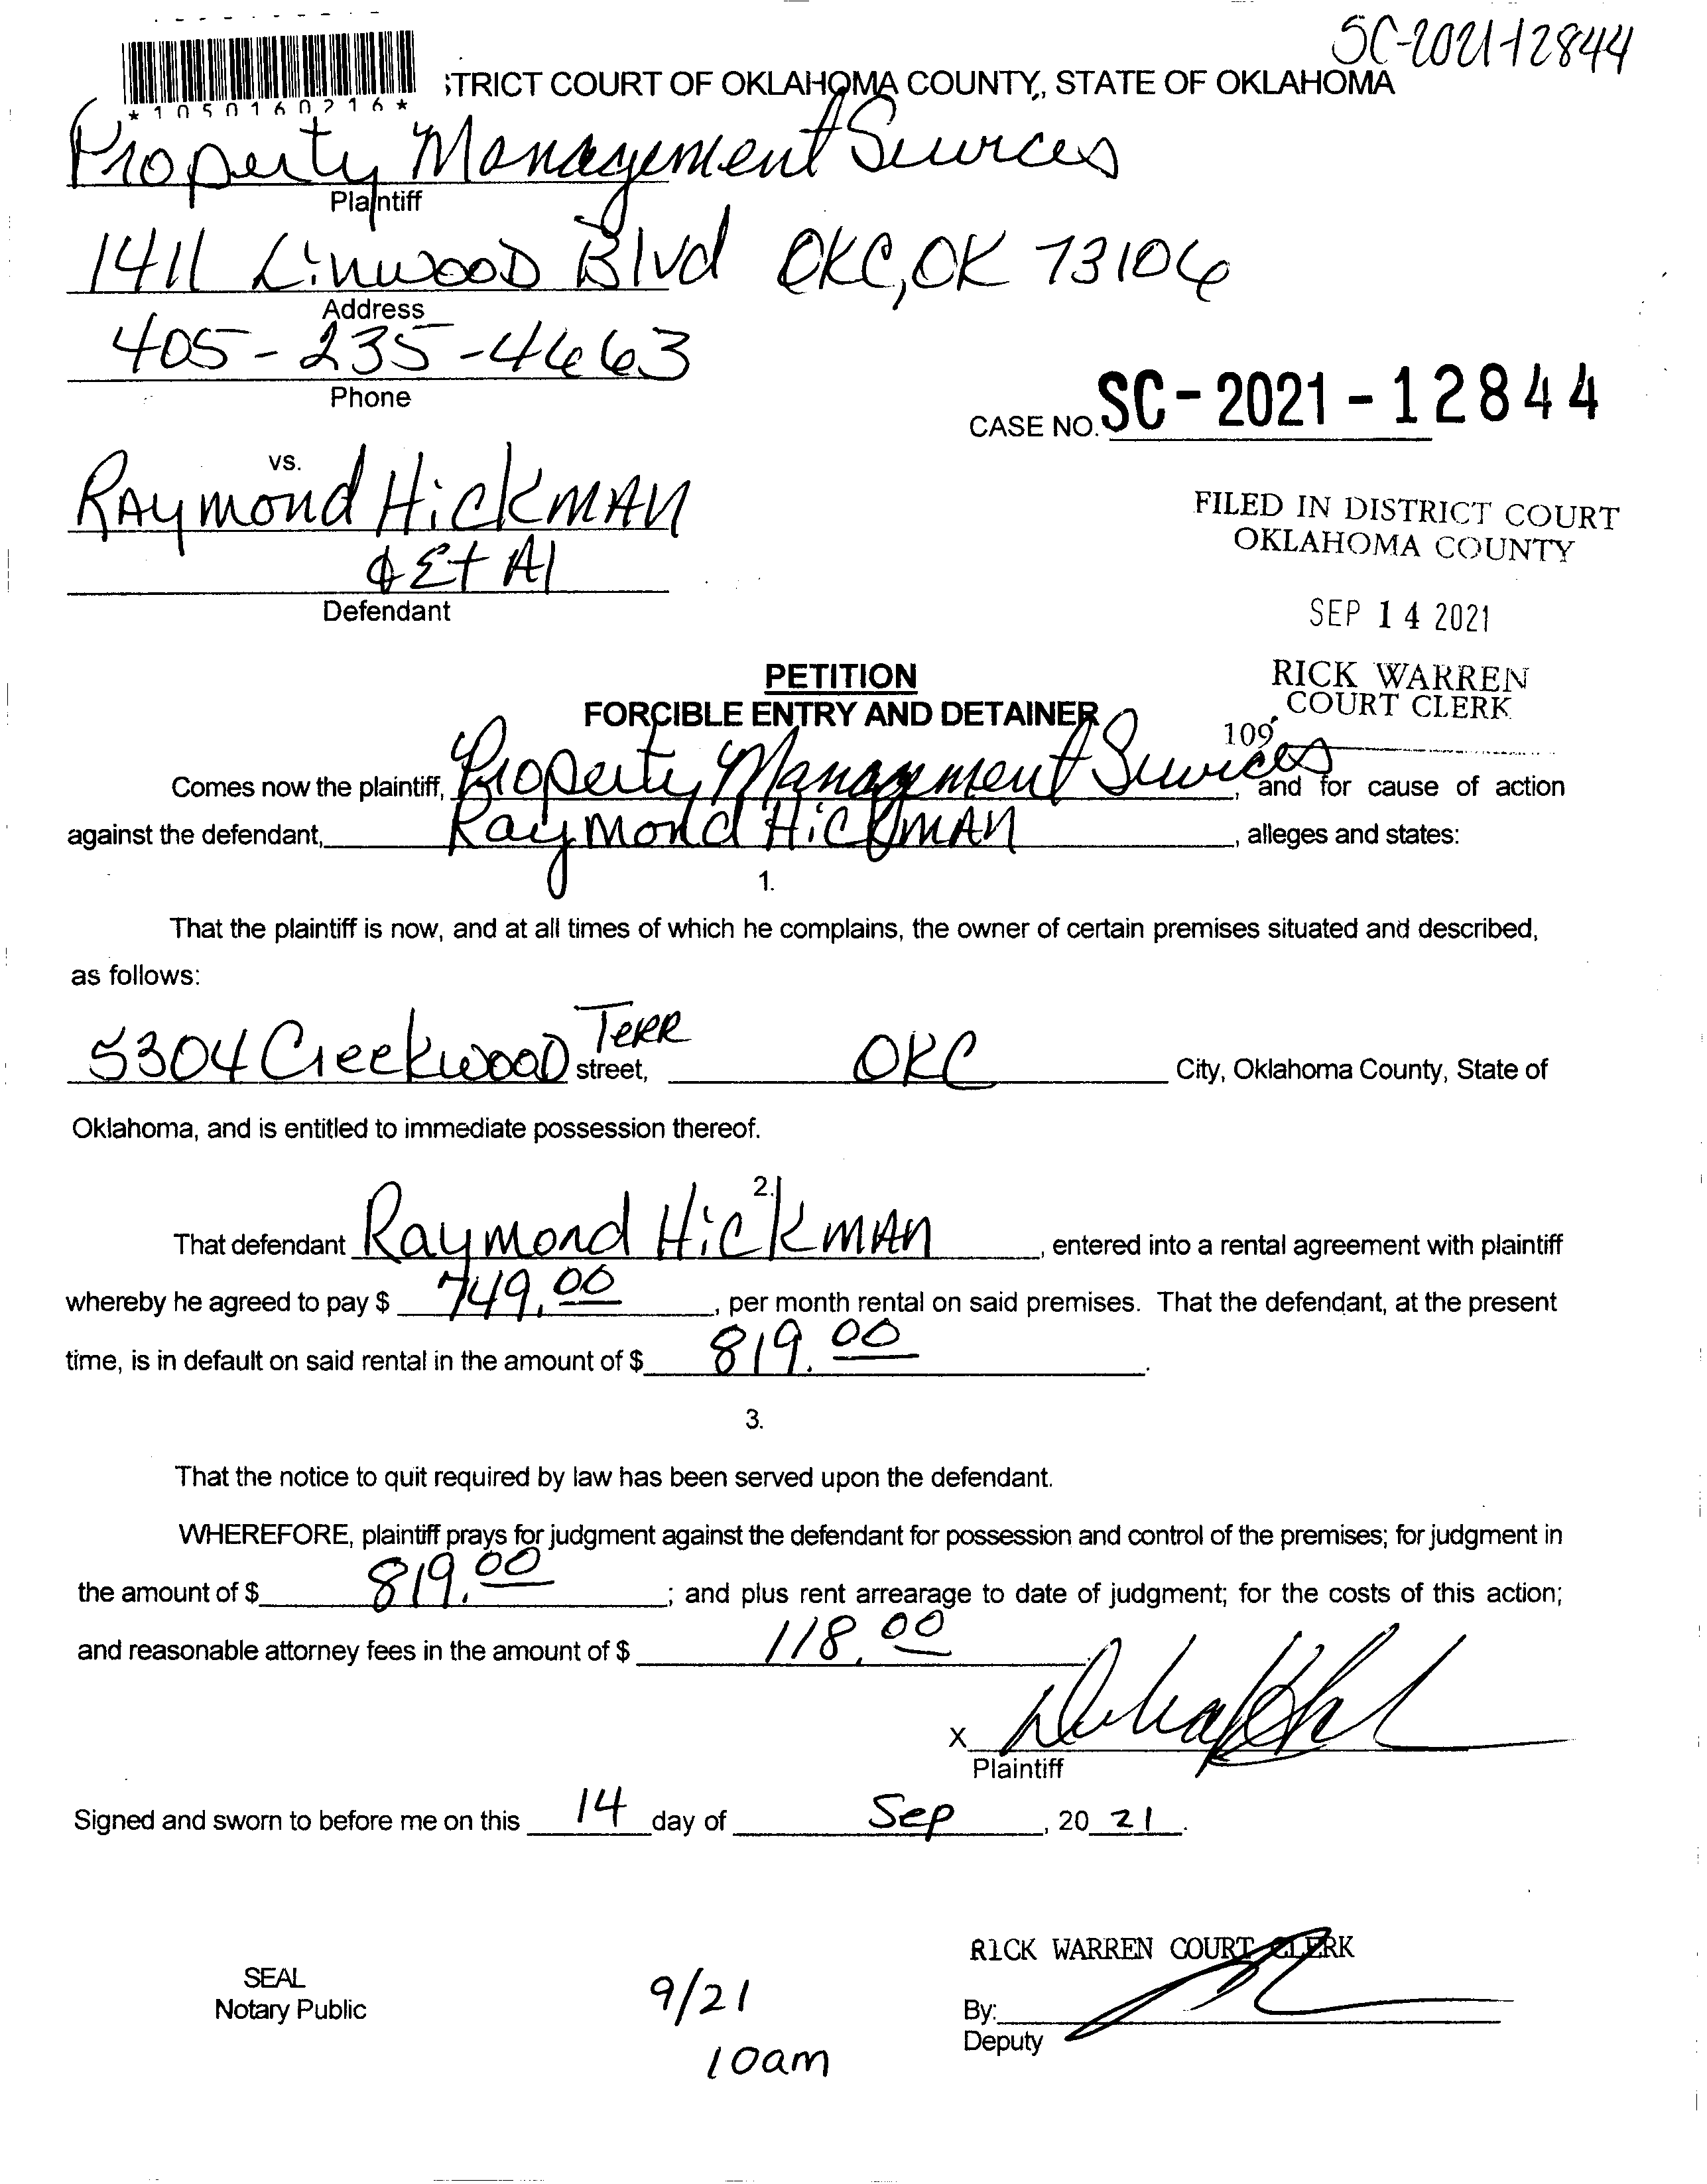 SC-2021-12844
STRICT COURT OF OKLAHOMA COUNTY, STATE OF OKLAHOMA
*1050160216*
Property Management Services
Plaintiff
1411 Linwood Blvd OKC, OK 73106
Address
405-235-4663
Phone
CASE NO. SC-2021-12844
vs.
Raymond Hickman
& Et Al
Defendant
FILED IN DISTRICT COURT
OKLAHOMA COUNTY
SEP 14 2021
RICK WARREN
COURT CLERK
109
PETITION
FORCIBLE ENTRY AND DETAINER
Comes now the plaintiff, Property Management Services, and for cause of action
against the defendant, Raymond Hickman, alleges and states:
1.
That the plaintiff is now, and at all times of which he complains, the owner of certain premises situated and described,
as follows:
5304 Creekwood Terr street, OKC City, Oklahoma County, State of
Oklahoma, and is entitled to immediate possession thereof.
2.
That defendant Raymond Hickman, entered into a rental agreement with plaintiff
whereby he agreed to pay $ 749.00, per month rental on said premises. That the defendant, at the present
time, is in default on said rental in the amount of $ 819.00.
3.
That the notice to quit required by law has been served upon the defendant.
WHEREFORE, plaintiff prays for judgment against the defendant for possession and control of the premises; for judgment in
the amount of $ 819.00; and plus rent arrearage to date of judgment; for the costs of this action;
and reasonable attorney fees in the amount of $ 118.00.
X
Plaintiff
Signed and sworn to before me on this 14 day of Sep, 20 21.
RICK WARREN COURT CLERK
SEAL
Notary Public
9/21
10am
By:
Deputy